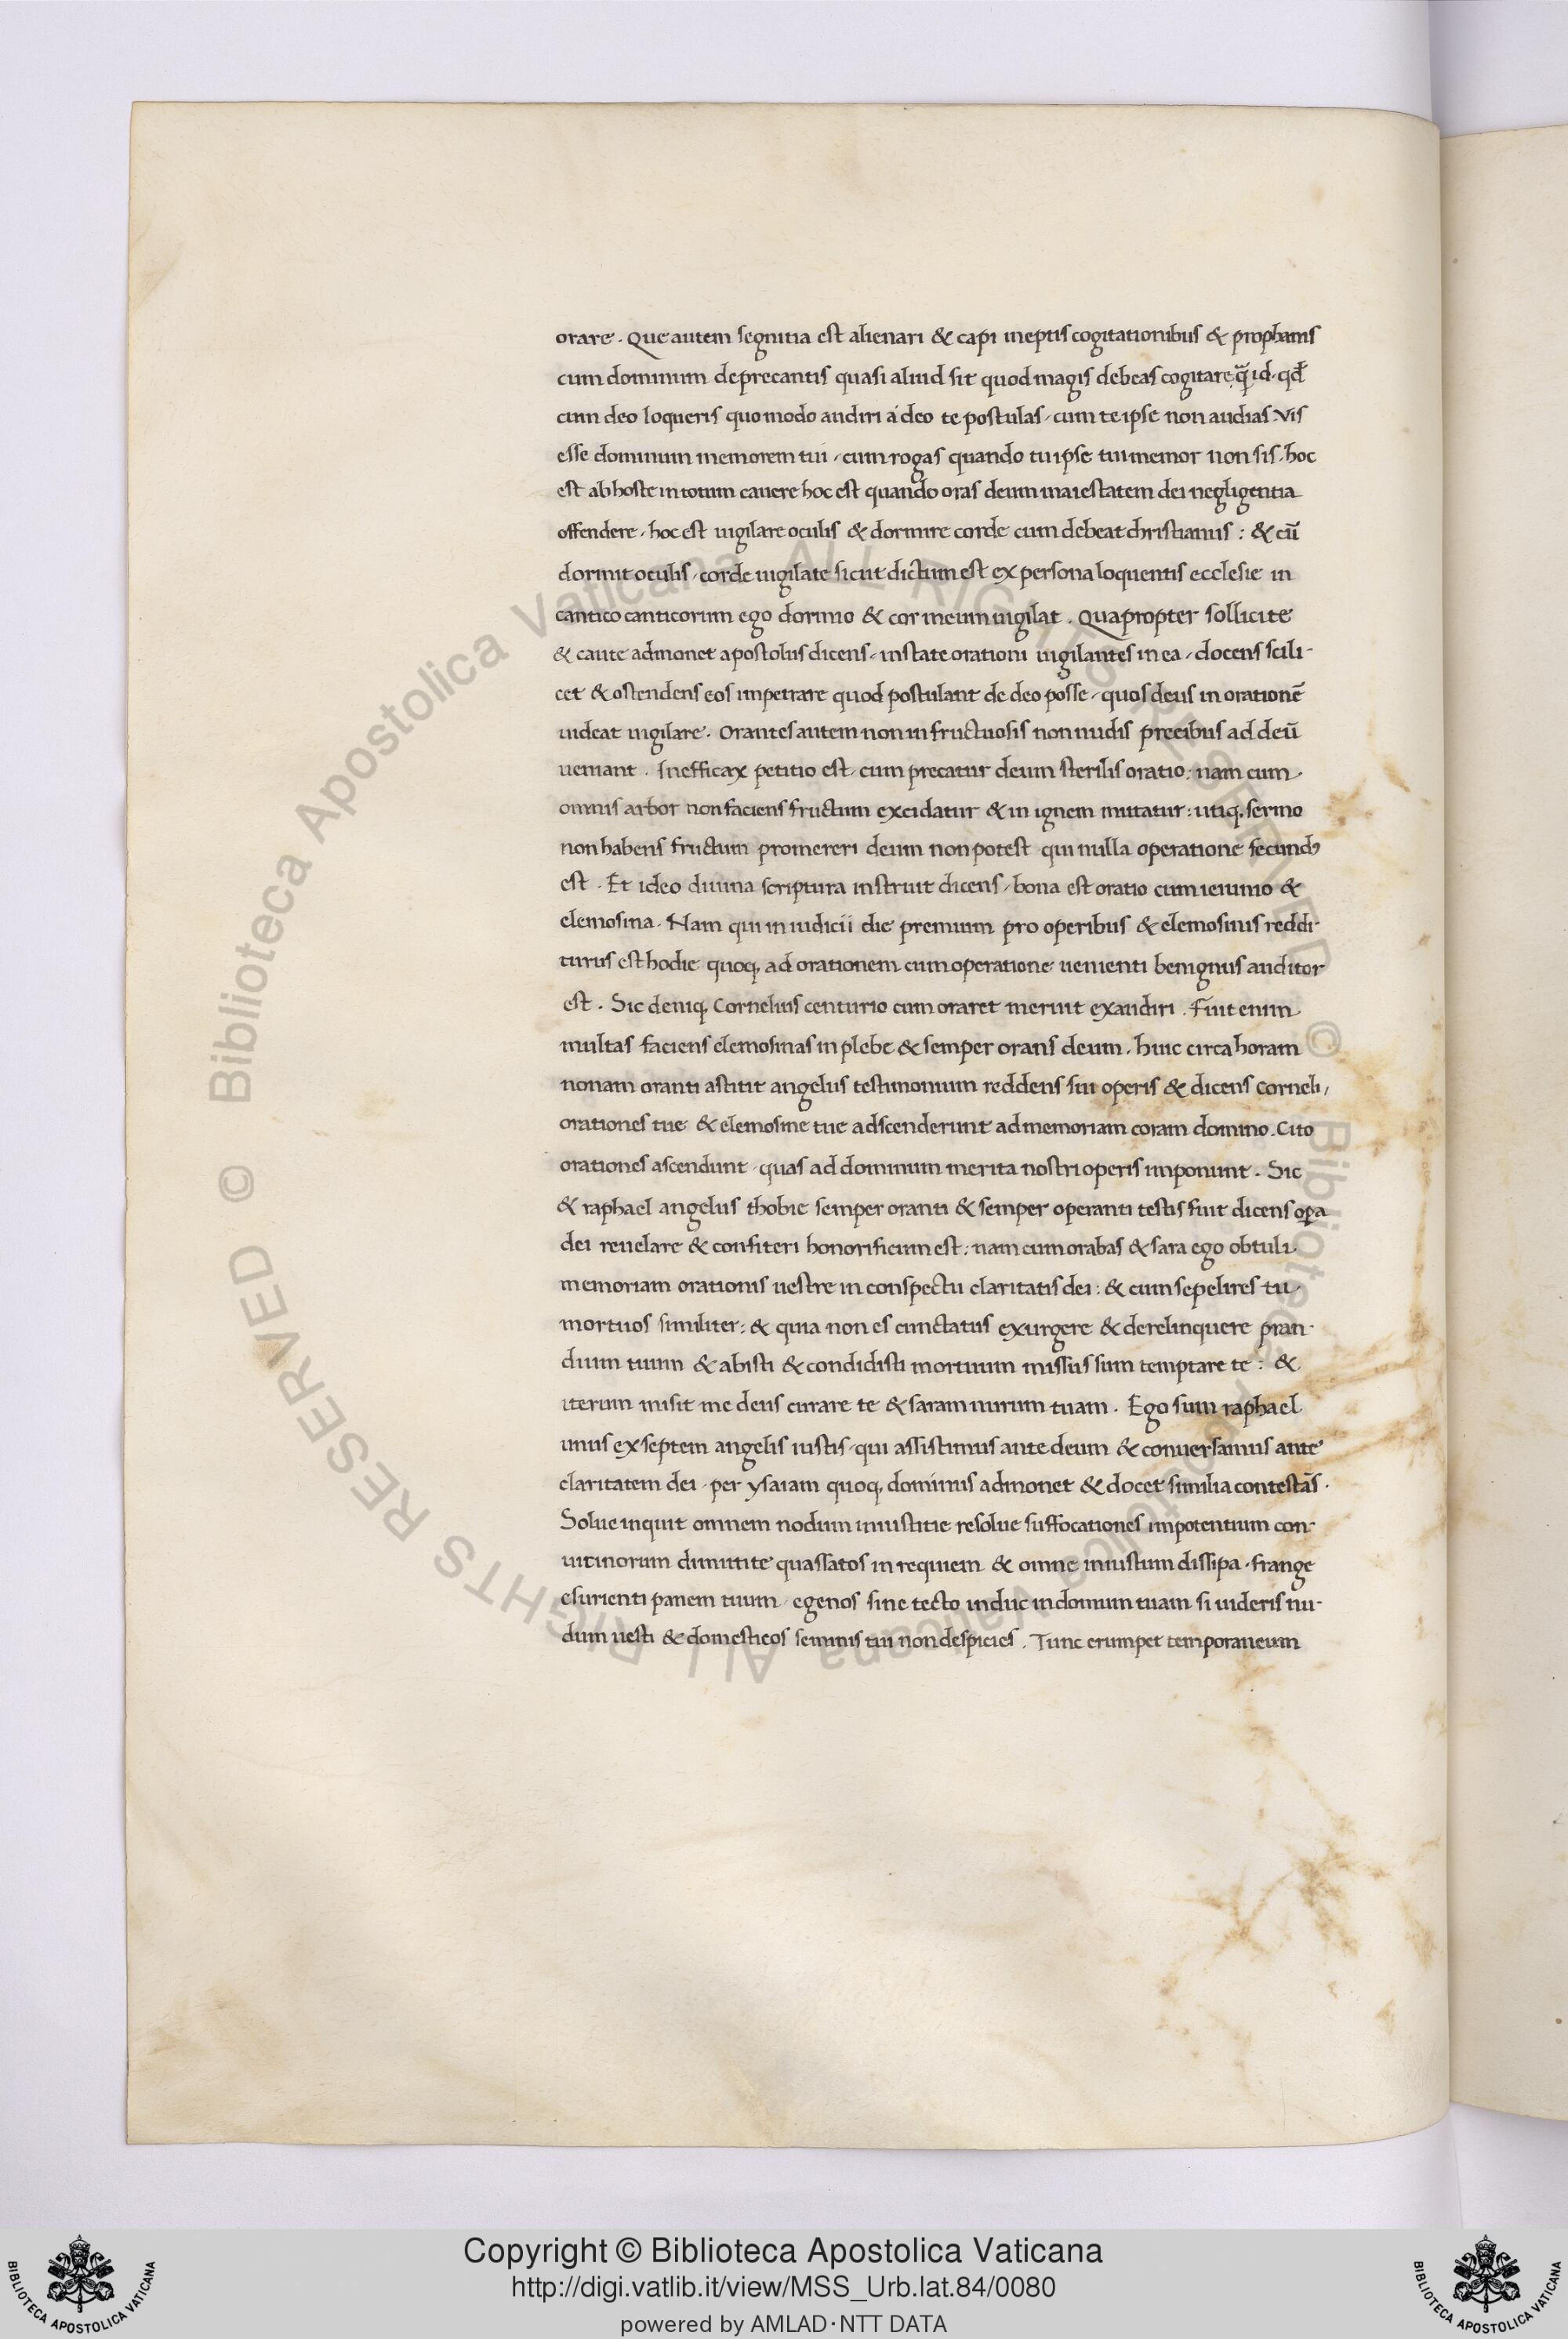 orare. Que autem segnitia est alienari & capi ineptis cogitationibus & prophanis
cum dominum deprecantis quasi aliud sit quod magis debeas cogitare q̄ id. qđ
cum deo loqueris quomodo audiri á deo te postulas, cum te ipse non audias. Vis
esse dominum memorem tui, cum rogas quando tu ipse tui memor non sis, hoc
est ab hoste in totum cauere hoc est quando oras deum maiestatem dei negligentia
offendere, hoc est uigilare oculis & dormire corde cum debeat christianus: & cū
dormit oculis, corde uigilate sicut dictum est ex persona loquentis ecclesie in
cantico canticorum ego dormio & cor meum uigilat. Quapropter sollicite
& caute admonet apostolus dicens, instate orationi uigilantes in ea, docens scili-
cet & ostendens eos impetrare quod postulant de deo posse, quos deus in orationē
uideat uigilare. Orantes autem non infructuosis non nudis precibus ad deū
ueniant. Inefficax petitio est, cum precatur deum sterilis oratio: nam cum
omnis arbor non faciens fructum excidatur & in ignem mittatur: utiq, sermo
non habens fructum promereri deum non potest qui nulla operatione secund9
est. Et ideo diuina scriptura instruit dicens, bona est oratio cum ieiunio &
elemosina. Nam qui in iudicii die premium pro operibus & elemosinis reddi-
turus est hodie quoq, ad orationem cum operatione uenienti benignus auditor
est. Sic deniq, Cornelius centurio cum oraret meruit exaudiri. Fuit enim
multas faciens elemosinas in plebe & semper orans deum. huic circa horam
nonam oranti astitit angelus testimonium reddens sui operis & dicens Corneli,
orationes tue & elemosine tue adscenderunt ad memoriam coram domino. Cito
orationes ascendunt, quas ad dominum merita nostri operis imponunt. Sic
& raphael angelus thobie semper oranti & semper operanti testis fuit dicens oꝑa
dei reuelare & confiteri honorificum est: nam cum orabas & sara ego obtuli
memoriam orationis uestre in conspectu claritatis dei: & cum sepelires tu
mortuos similiter: & quia non es cunctatus exurgere & derelinquere pran-
dium tuum & abisti & condidisti mortuum missus sum temptare te: &
iterum misit me deus curare te & saram nurum tuam. Ego sum raphael
unus ex septem angelis iustis, qui assistimus ante deum & conuersamus ante
claritatem dei, per ysaiam quoq, dominus admonet & docet similia contestās.
Solue inquit omnem nodum iniustitie resolue suffocationes impotentium con-
uitiuorum dimitite quassatos in requiem & omne iniustum dissipa. frange
esurienti panem tuum, egenos sine tecto induc in domum tuam si uideris nu-
dum uesti & domesticos seminis tui non despicies. Tunc erumpet temporaneum
© Biblioteca Apostolica Vaticana ALL RIGHTS RESERVED © Biblioteca Apostolica Vaticana ALL RIGHTS RESERVED
Copyright © Biblioteca Apostolica Vaticana
http://digi.vatlib.it/view/MSS_Urb.lat.84/0080
powered by AMLAD·NTT DATA
BIBLIOTECA APOSTOLICA VATICANA
BIBLIOTECA APOSTOLICA VATICANA